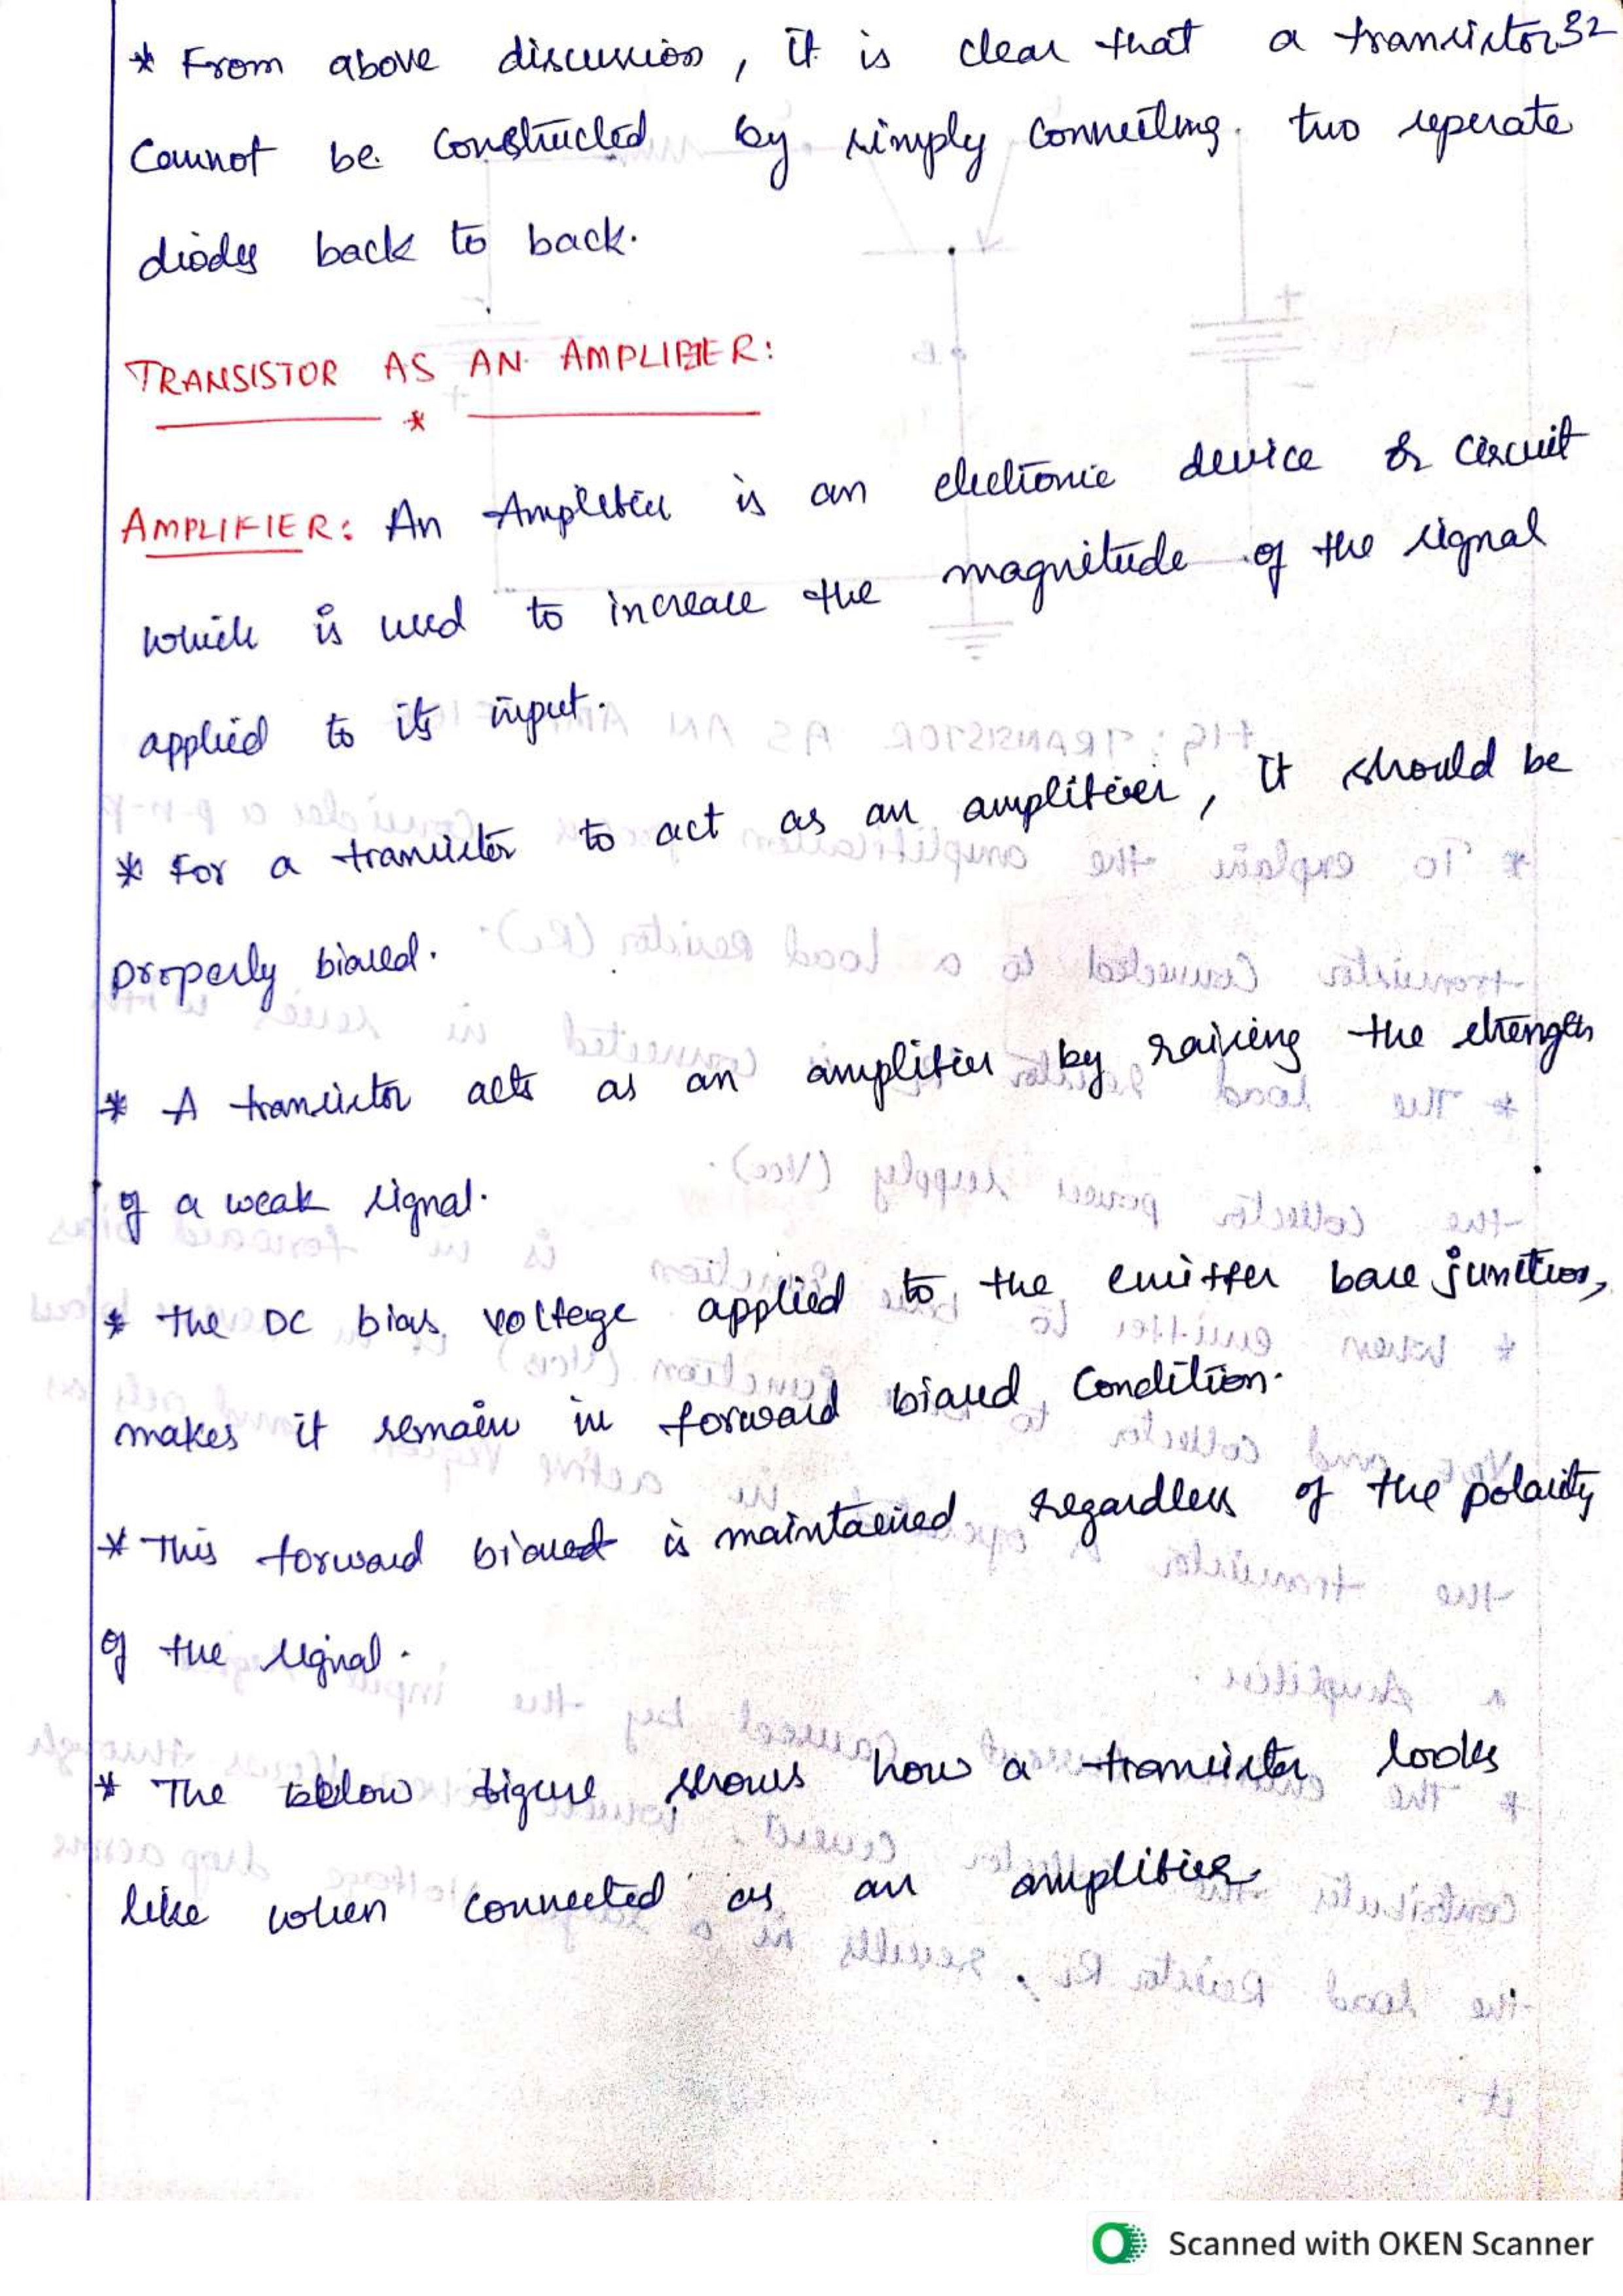 * From above discussion, it is clear that a transistor 32
Cannot be constructed by simply connecting two seperate
diodes back to back.
TRANSISTOR AS AN AMPLIFIER:
*
AMPLIFIER: An Amplifier is an electronic device or circuit
which is used to increase the magnitude of the signal
applied to its input.
* For a transistor to act as an amplifier, it should be
properly biased.
* A transistor acts as an amplifier by raising the strength
of a weak signal.
* The DC bias voltage applied to the emitter base junction,
makes it remain in forward biased condition.
* This forward biased is maintained regardless of the polarity
of the signal.
* The below figure shows how a transistor looks
like when connected as an amplifier.
Scanned with OKEN Scanner